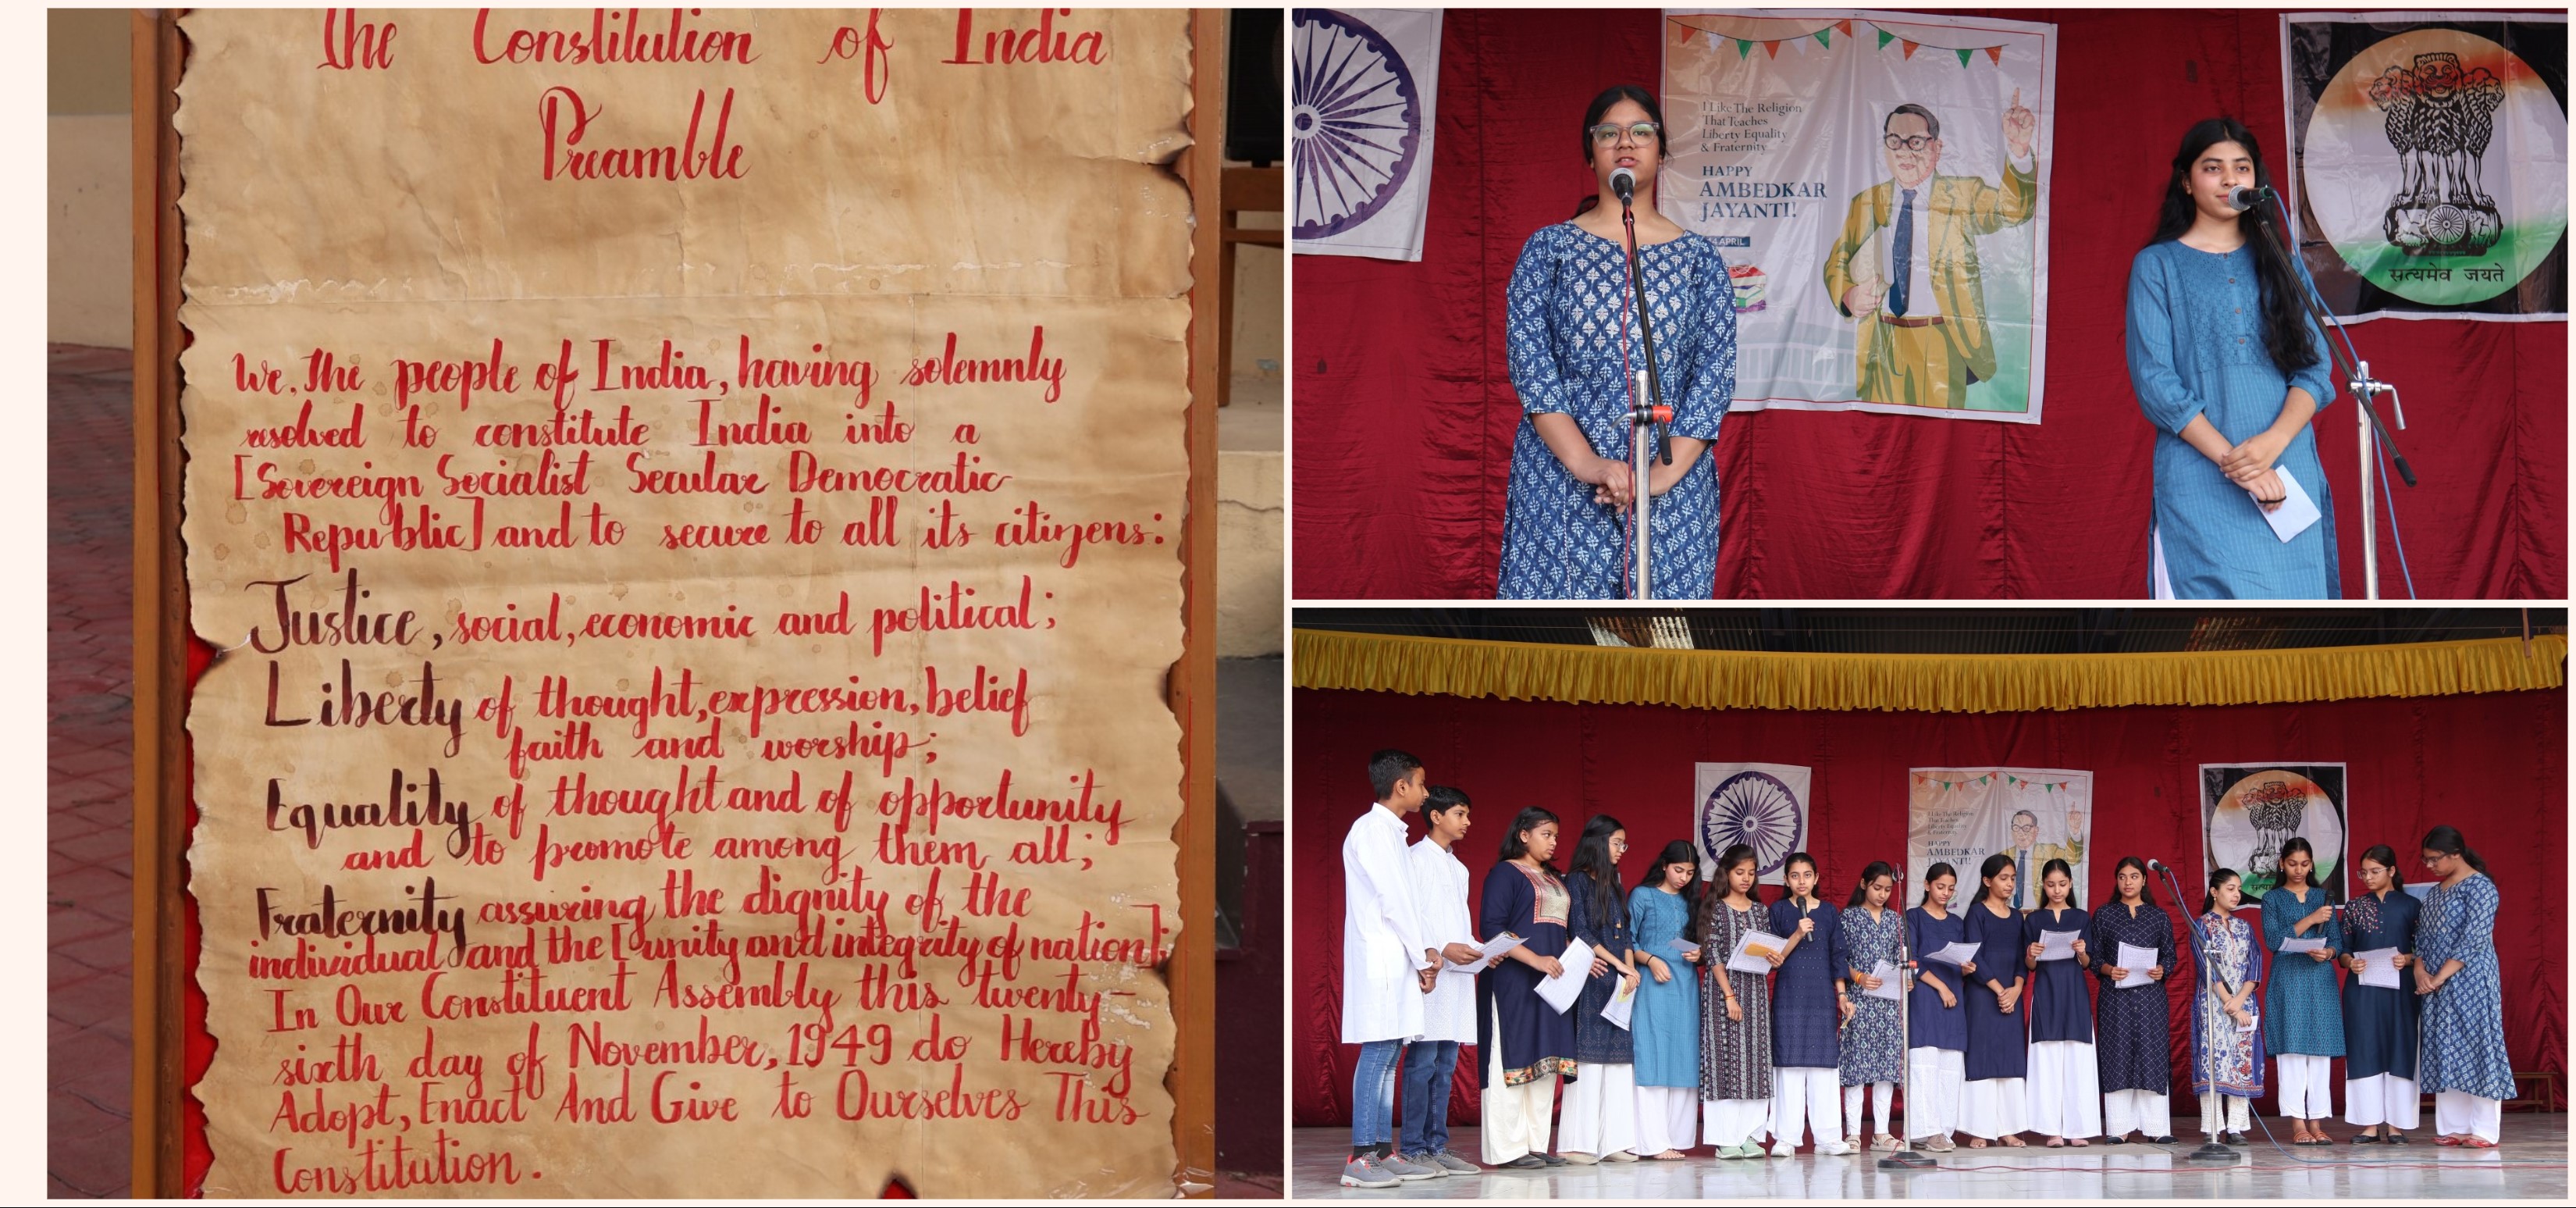 The Constitution of India
Preamble
We, The people of India, having solemnly
resolved to constitute India into a
[Sovereign Socialist Secular Democratic
Republic] and to secure to all its citizens:
Justice, social, economic and political;
Liberty of thought, expression, belief
faith and worship;
Equality of thought and of opportunity
and to promote among them all;
Fraternity assuring the dignity of the
individual and the [unity and integrity of nation];
In Our Constituent Assembly this twenty-
sixth day of November, 1949 do Hereby
Adopt, Enact And Give to Ourselves This
Constitution.
I Like The Religion
That Teaches
Liberty Equality
& Fraternity
HAPPY
AMBEDKAR
JAYANTI!
14 APRIL
सत्यमेव जयते
I Like The Religion
That Teaches
Liberty Equality
& Fraternity
HAPPY
AMBEDKAR
JAYANTI!